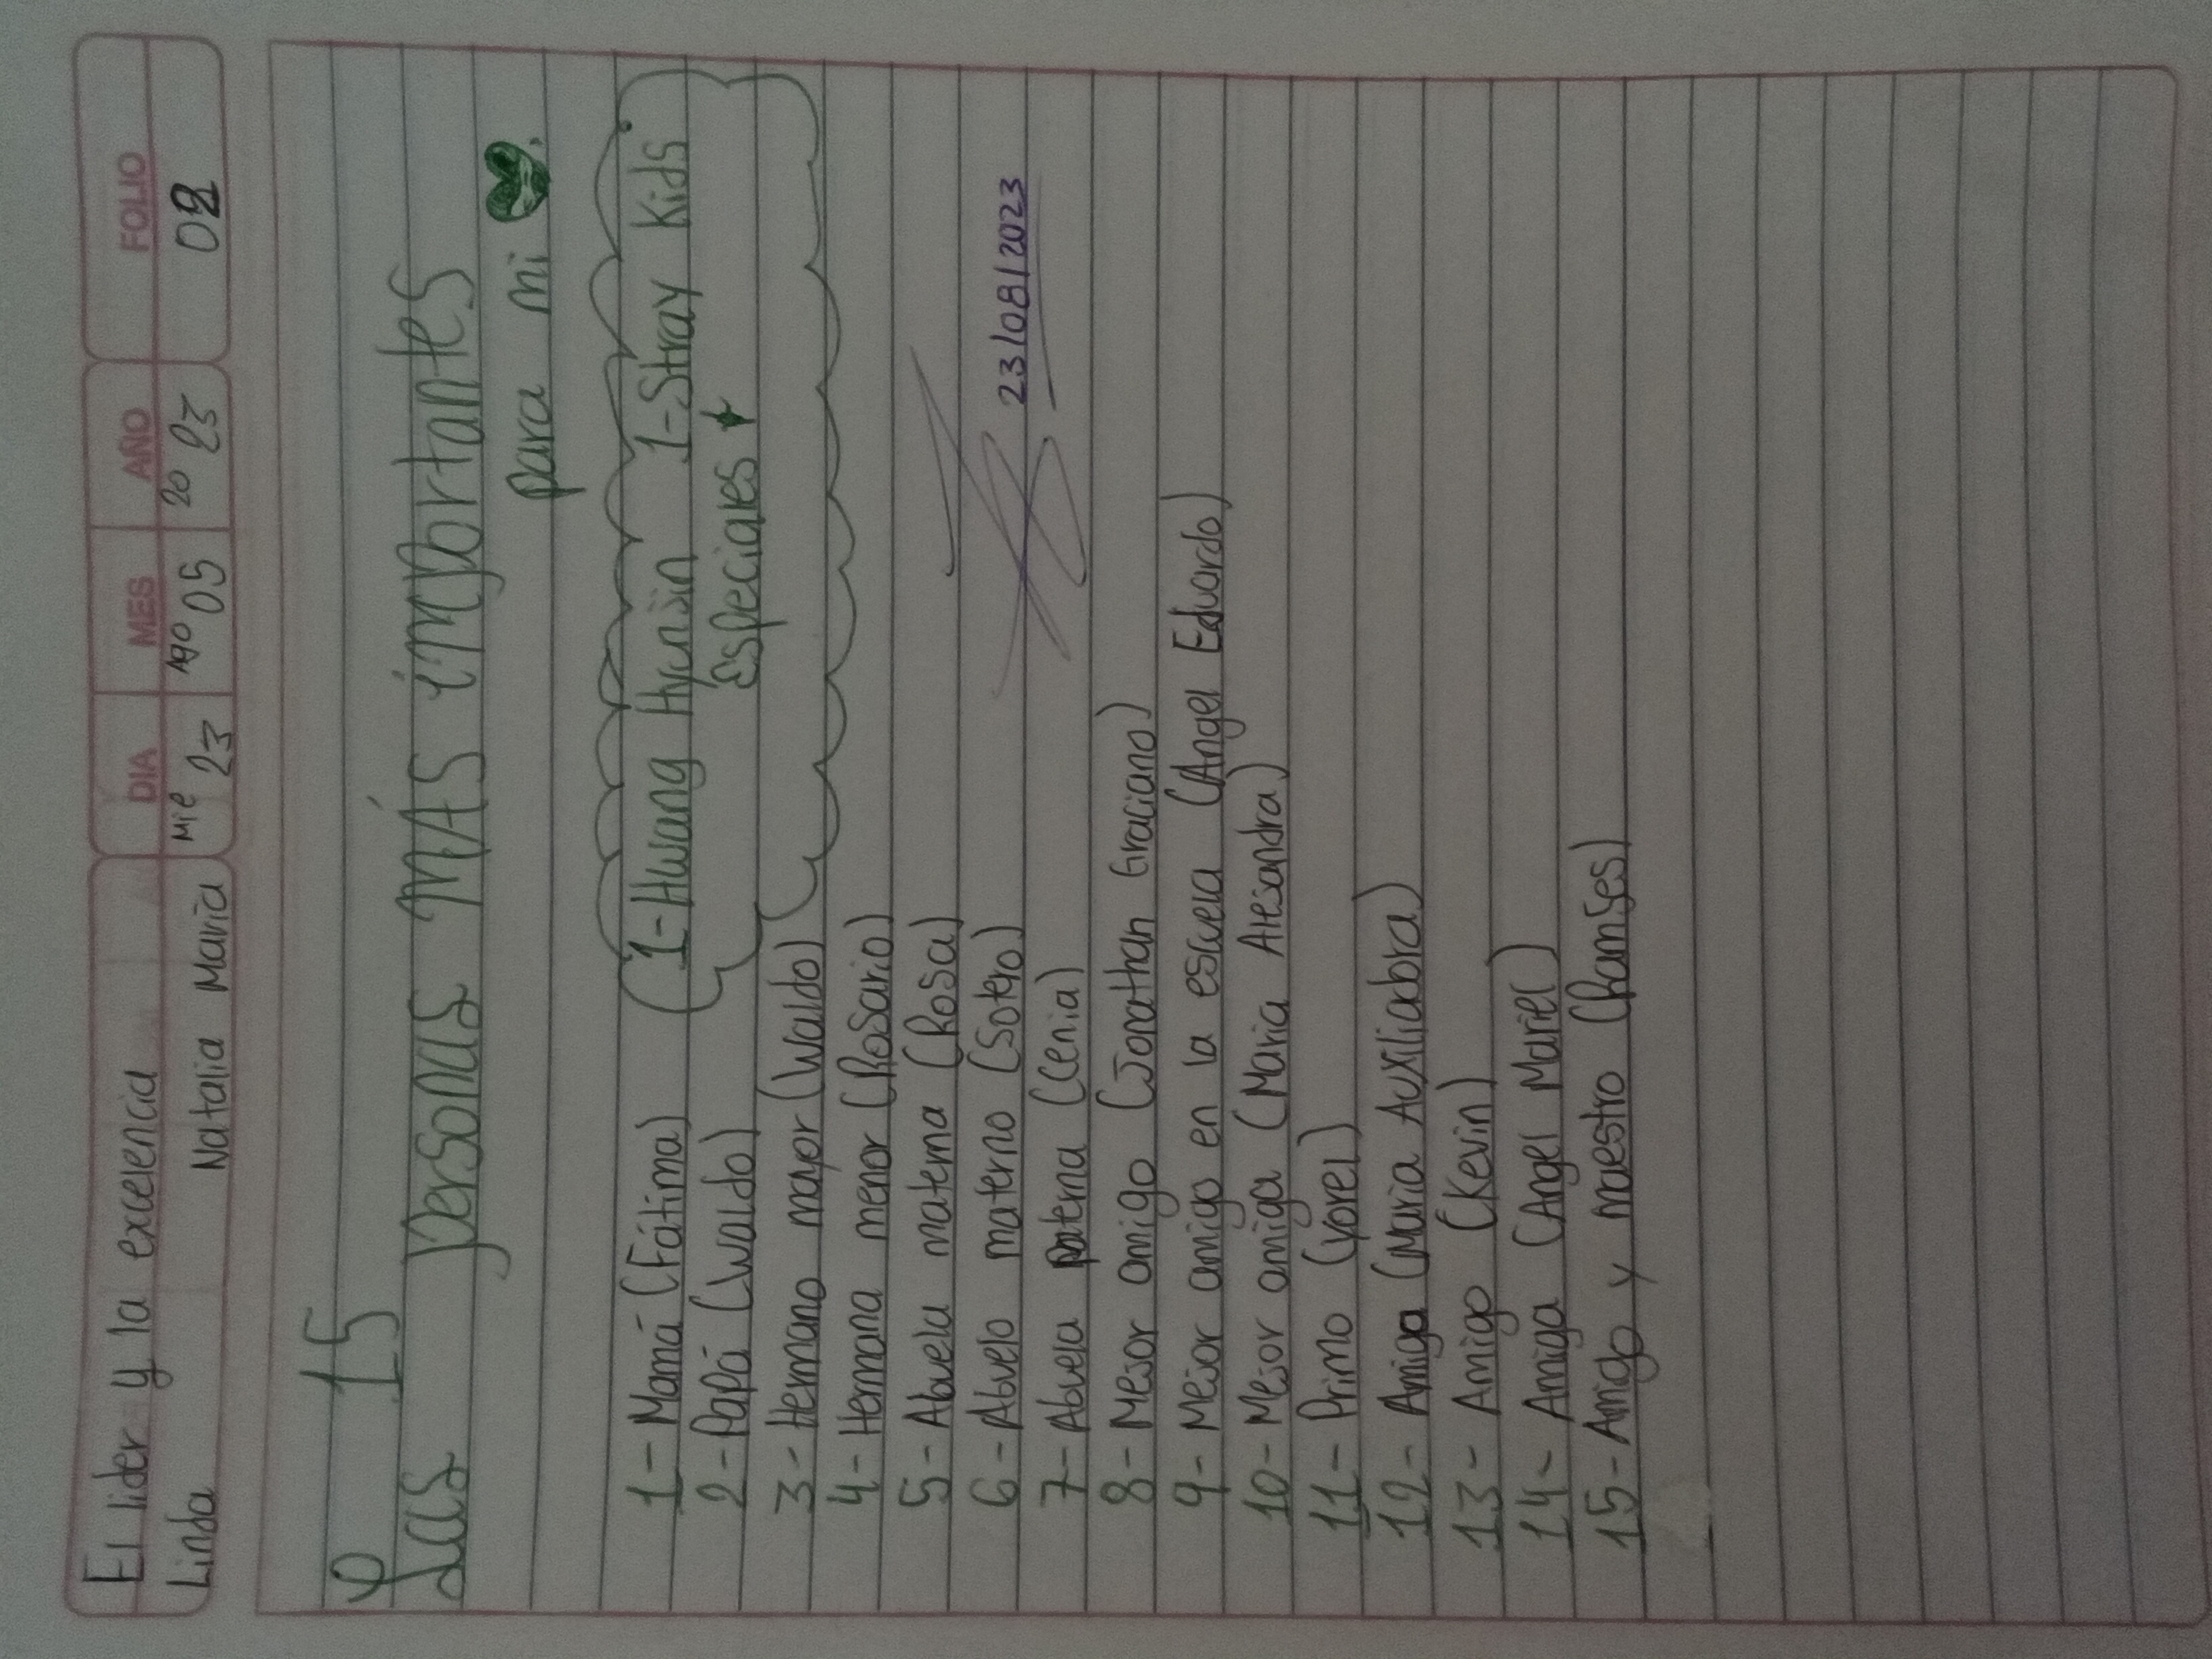 El lider y la excelencia
DIA MES AÑO FOLIO
Linda Natalia María Mie 23 Ago 05 20 23 02
15
Las personas MÁS importantes
para mi
1-Hwang Hyunjin 1-Stray Kids
Especiales
1- Mamá (Fátima)
2- Papá (Waldo)
3- Hermano mayor (Waldo)
4- Hermana menor (Rosario)
5- Abuela materna (Rosa)
6- Abuelo materno (Sotero)
7- Abuela paterna (Cenia)
8- Mejor amigo (Jonathan Graciano)
9- Mejor amigo en la escuela (Angel Eduardo)
10- Mejor amiga (María Alesandra)
11- Primo (Yorel)
12- Amiga (María Auxiliabra)
13- Amigo (Kevin)
14- Amiga (Angel Mariel)
15- Amigo y maestro (Ramses)
23/08/2023